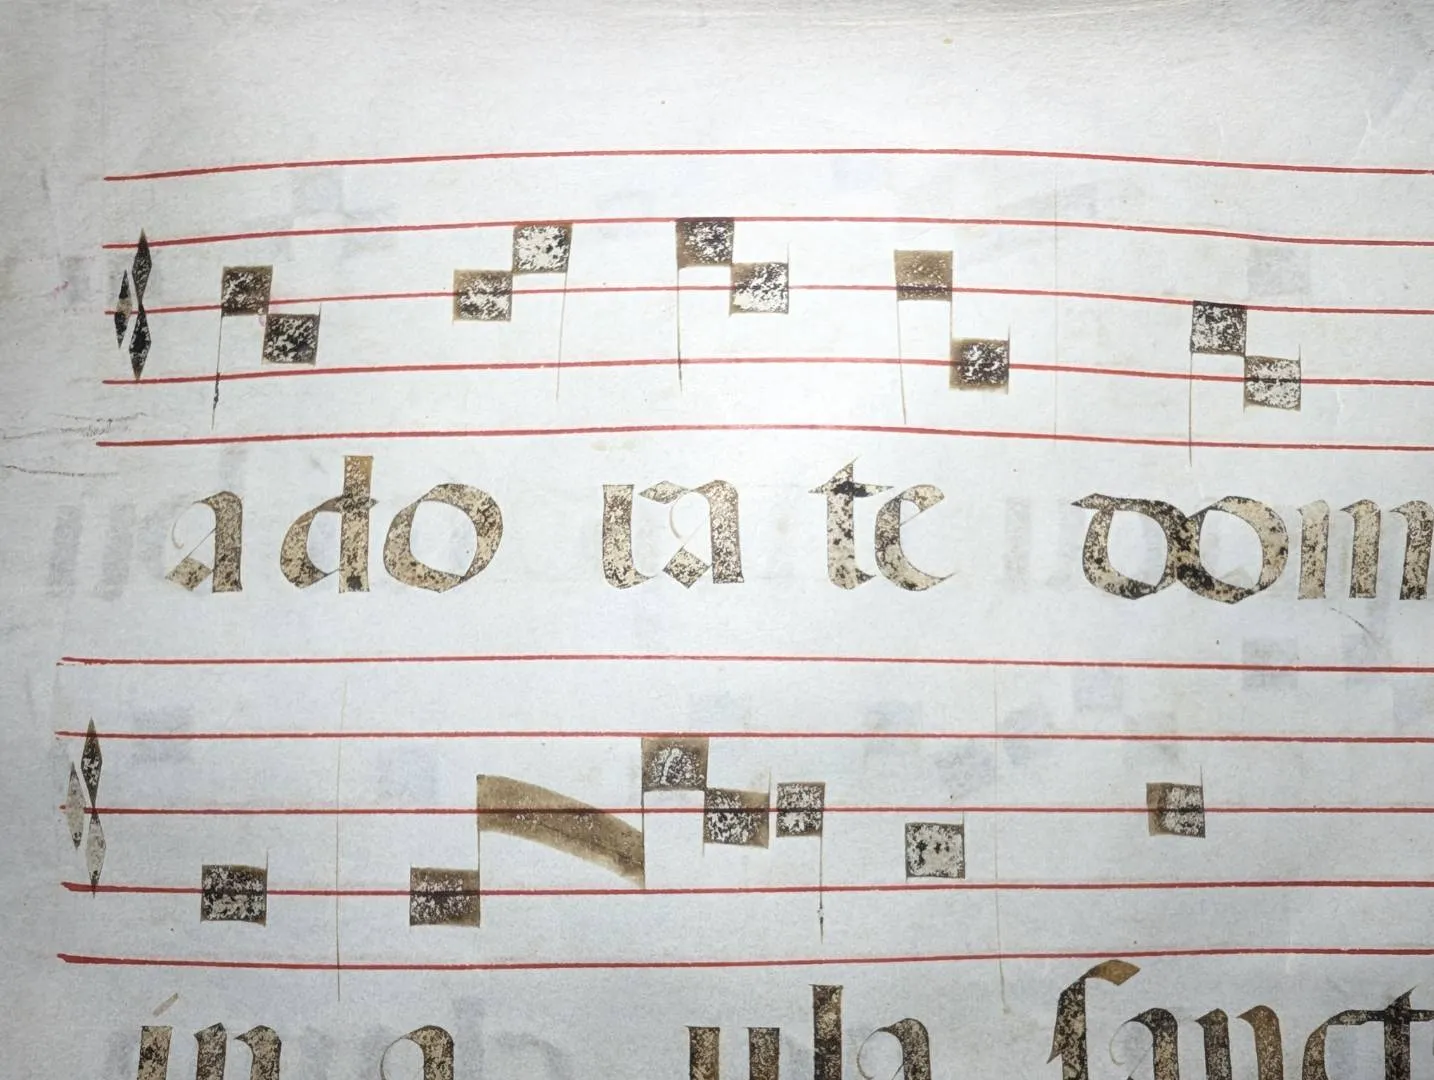 ado ra te dom
in a ula sanct